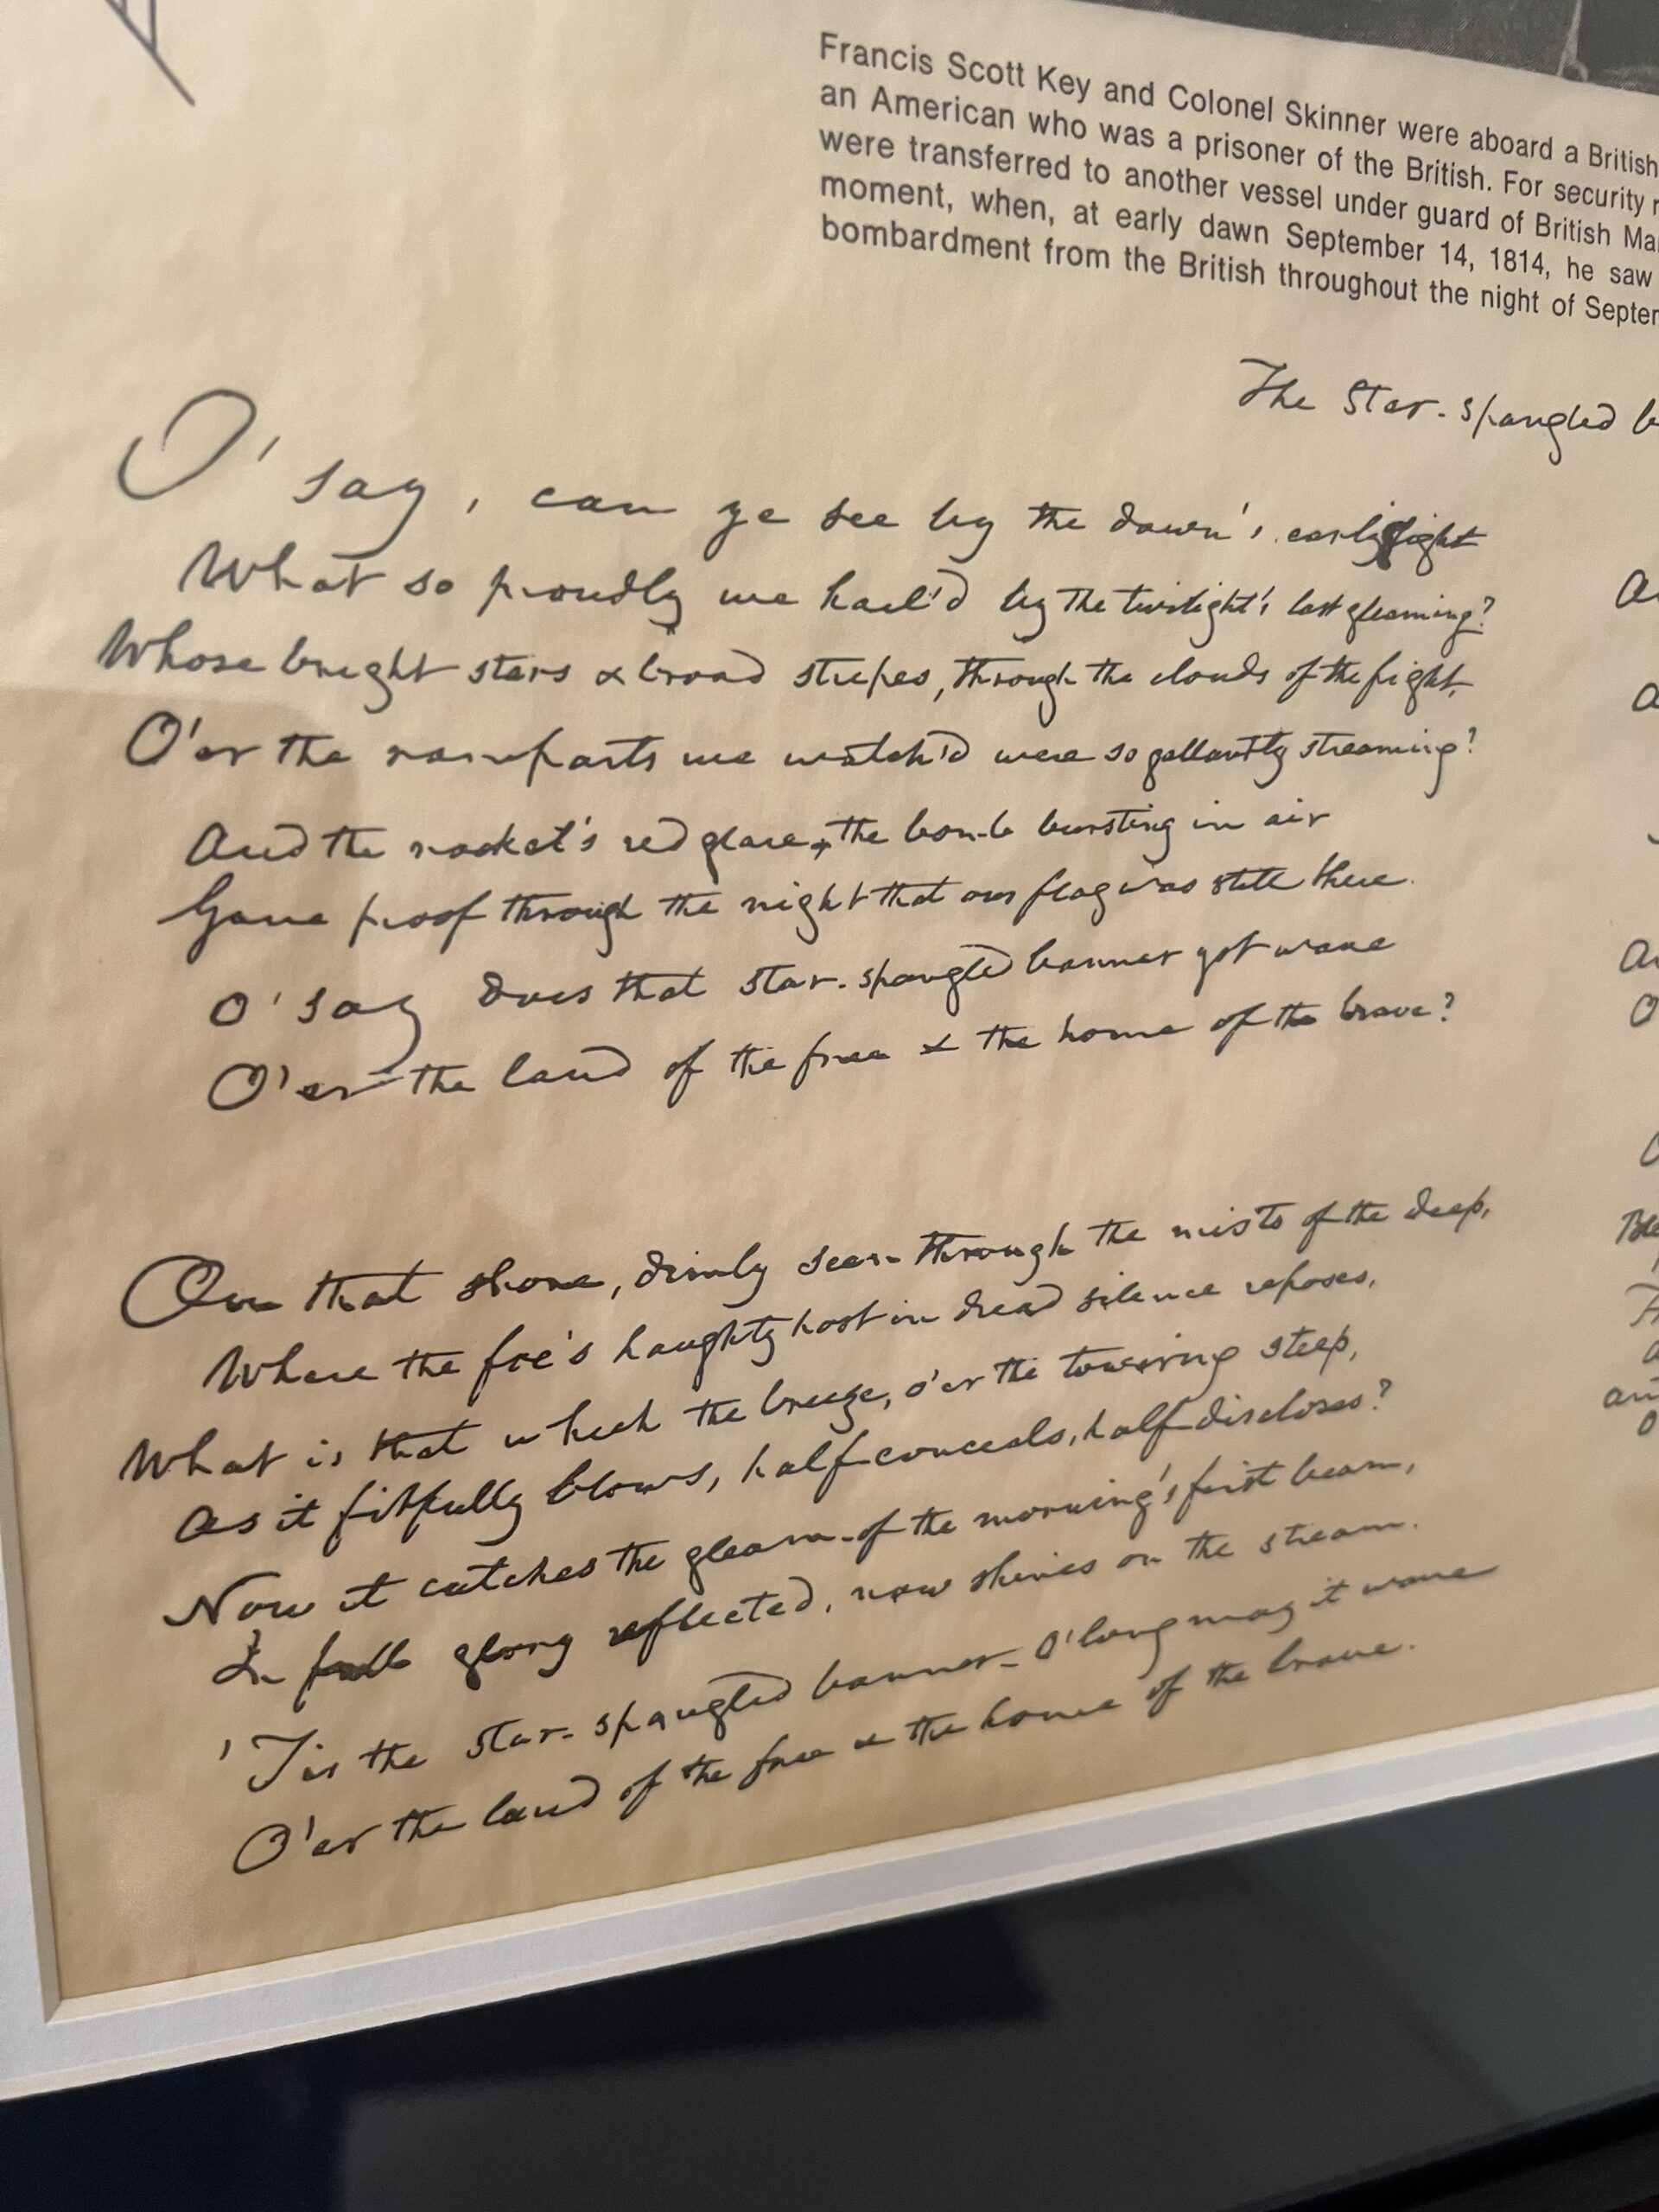 Francis Scott Key and Colonel Skinner were aboard a British
an American who was a prisoner of the British. For security
were transferred to another vessel under guard of British
moment, when, at early dawn September 14, 1814, he saw
bombardment from the British throughout the night of
The Star-spangled
O' say, can ye see by the dawn's early light
What so proudly we hail'd by the twilight's last gleaming?
Whose bright stars & broad stripes, through the clouds of the fight,
O'er the ramparts we watch'd were so gallantly streaming?
And the rocket's red glare, the bomb bursting in air
Gave proof through the night that our flag was still there.
O' say does that star-spangled banner yet wave
O'er the land of the free & the home of the brave?
On that shore, dimly seen through the mists of the deep,
Where the foe's haughty host in dread silence reposes,
What is that which the breeze, o'er the towering steep,
As it fitfully blows, half conceals, half discloses?
Now it catches the gleam of the morning's first beam,
In full glory reflected, now shines on the stream.
'Tis the star-spangled banner - O' long may it wave
O'er the land of the free & the home of the brave.